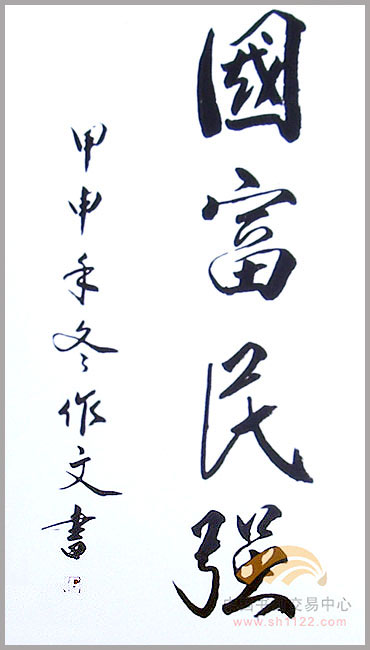 國富民强
甲申年冬作文書
交易中心
www.sh1122.com